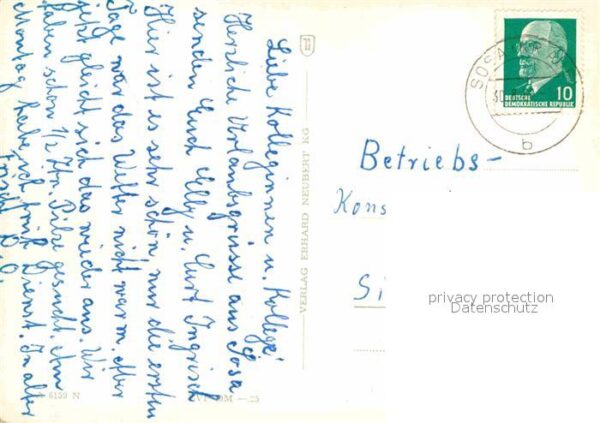 Liebe Kolleginnen u. Kollege!
Herzliche Urlaubsgrüsse aus Sosa
senden Euch Elly u. Curt
Hier ist es sehr schön, nur die ersten
Tage war das Wetter nicht warm. Aber
jetzt gleicht sich das wieder aus. Wir
haben schon 1/2 Ztn. Pilze gesucht. Am
Montag habe ich früh Dienst. In alter
Frische
VERLAG ERHARD NEUBERT KG
6159 N
SOSA
b
10
DEUTSCHE
DEMOKRATISCHE REPUBLIK
Betriebs-
Kons
Si
privacy protection
Datenschutz